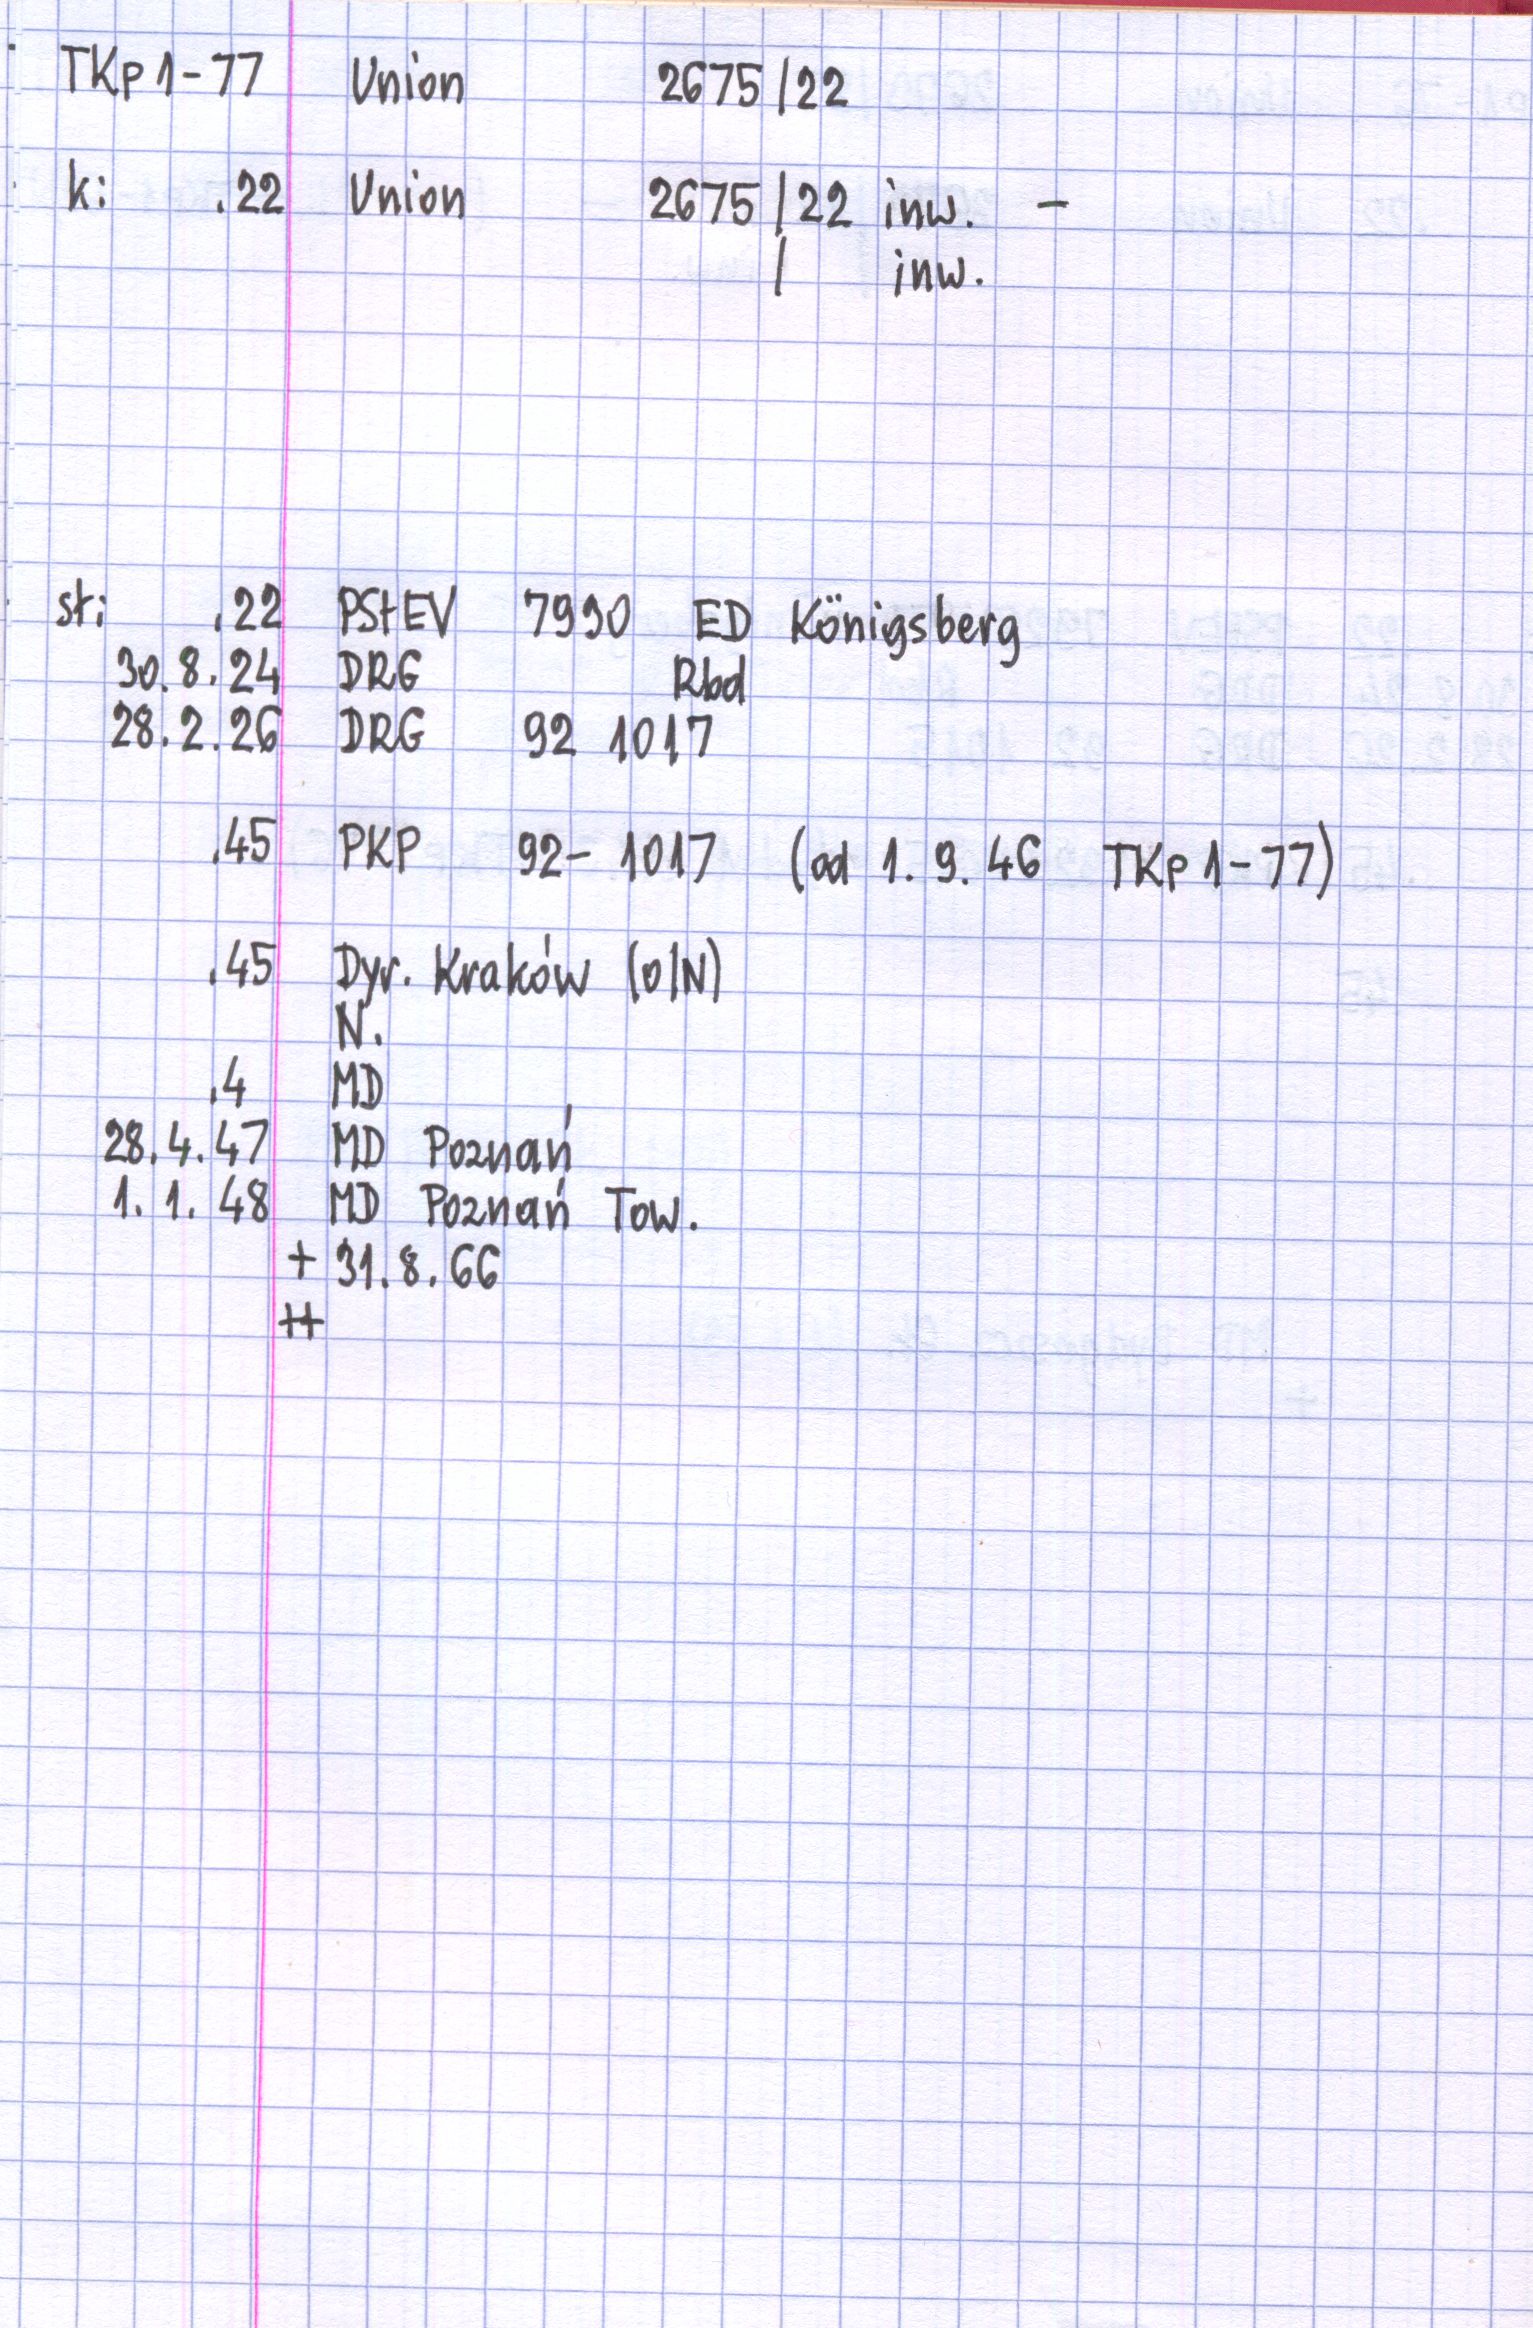 TKp 1-77 Union 2675/22
k: .22 Union 2675/22 inw. -
/ inw.
st: .22 PStEV 7990 ED Königsberg
30.8.24 DRG Rbd
28.2.26 DRG 92 1017
.45 PKP 92-1017 (od 1.9.46 TKp 1-77)
.45 Dyr. Kraków (o/N)
N.
.4 MD
28.4.47 MD Poznań
1.1.48 MD Poznań Tow.
+ 31.8.66
++